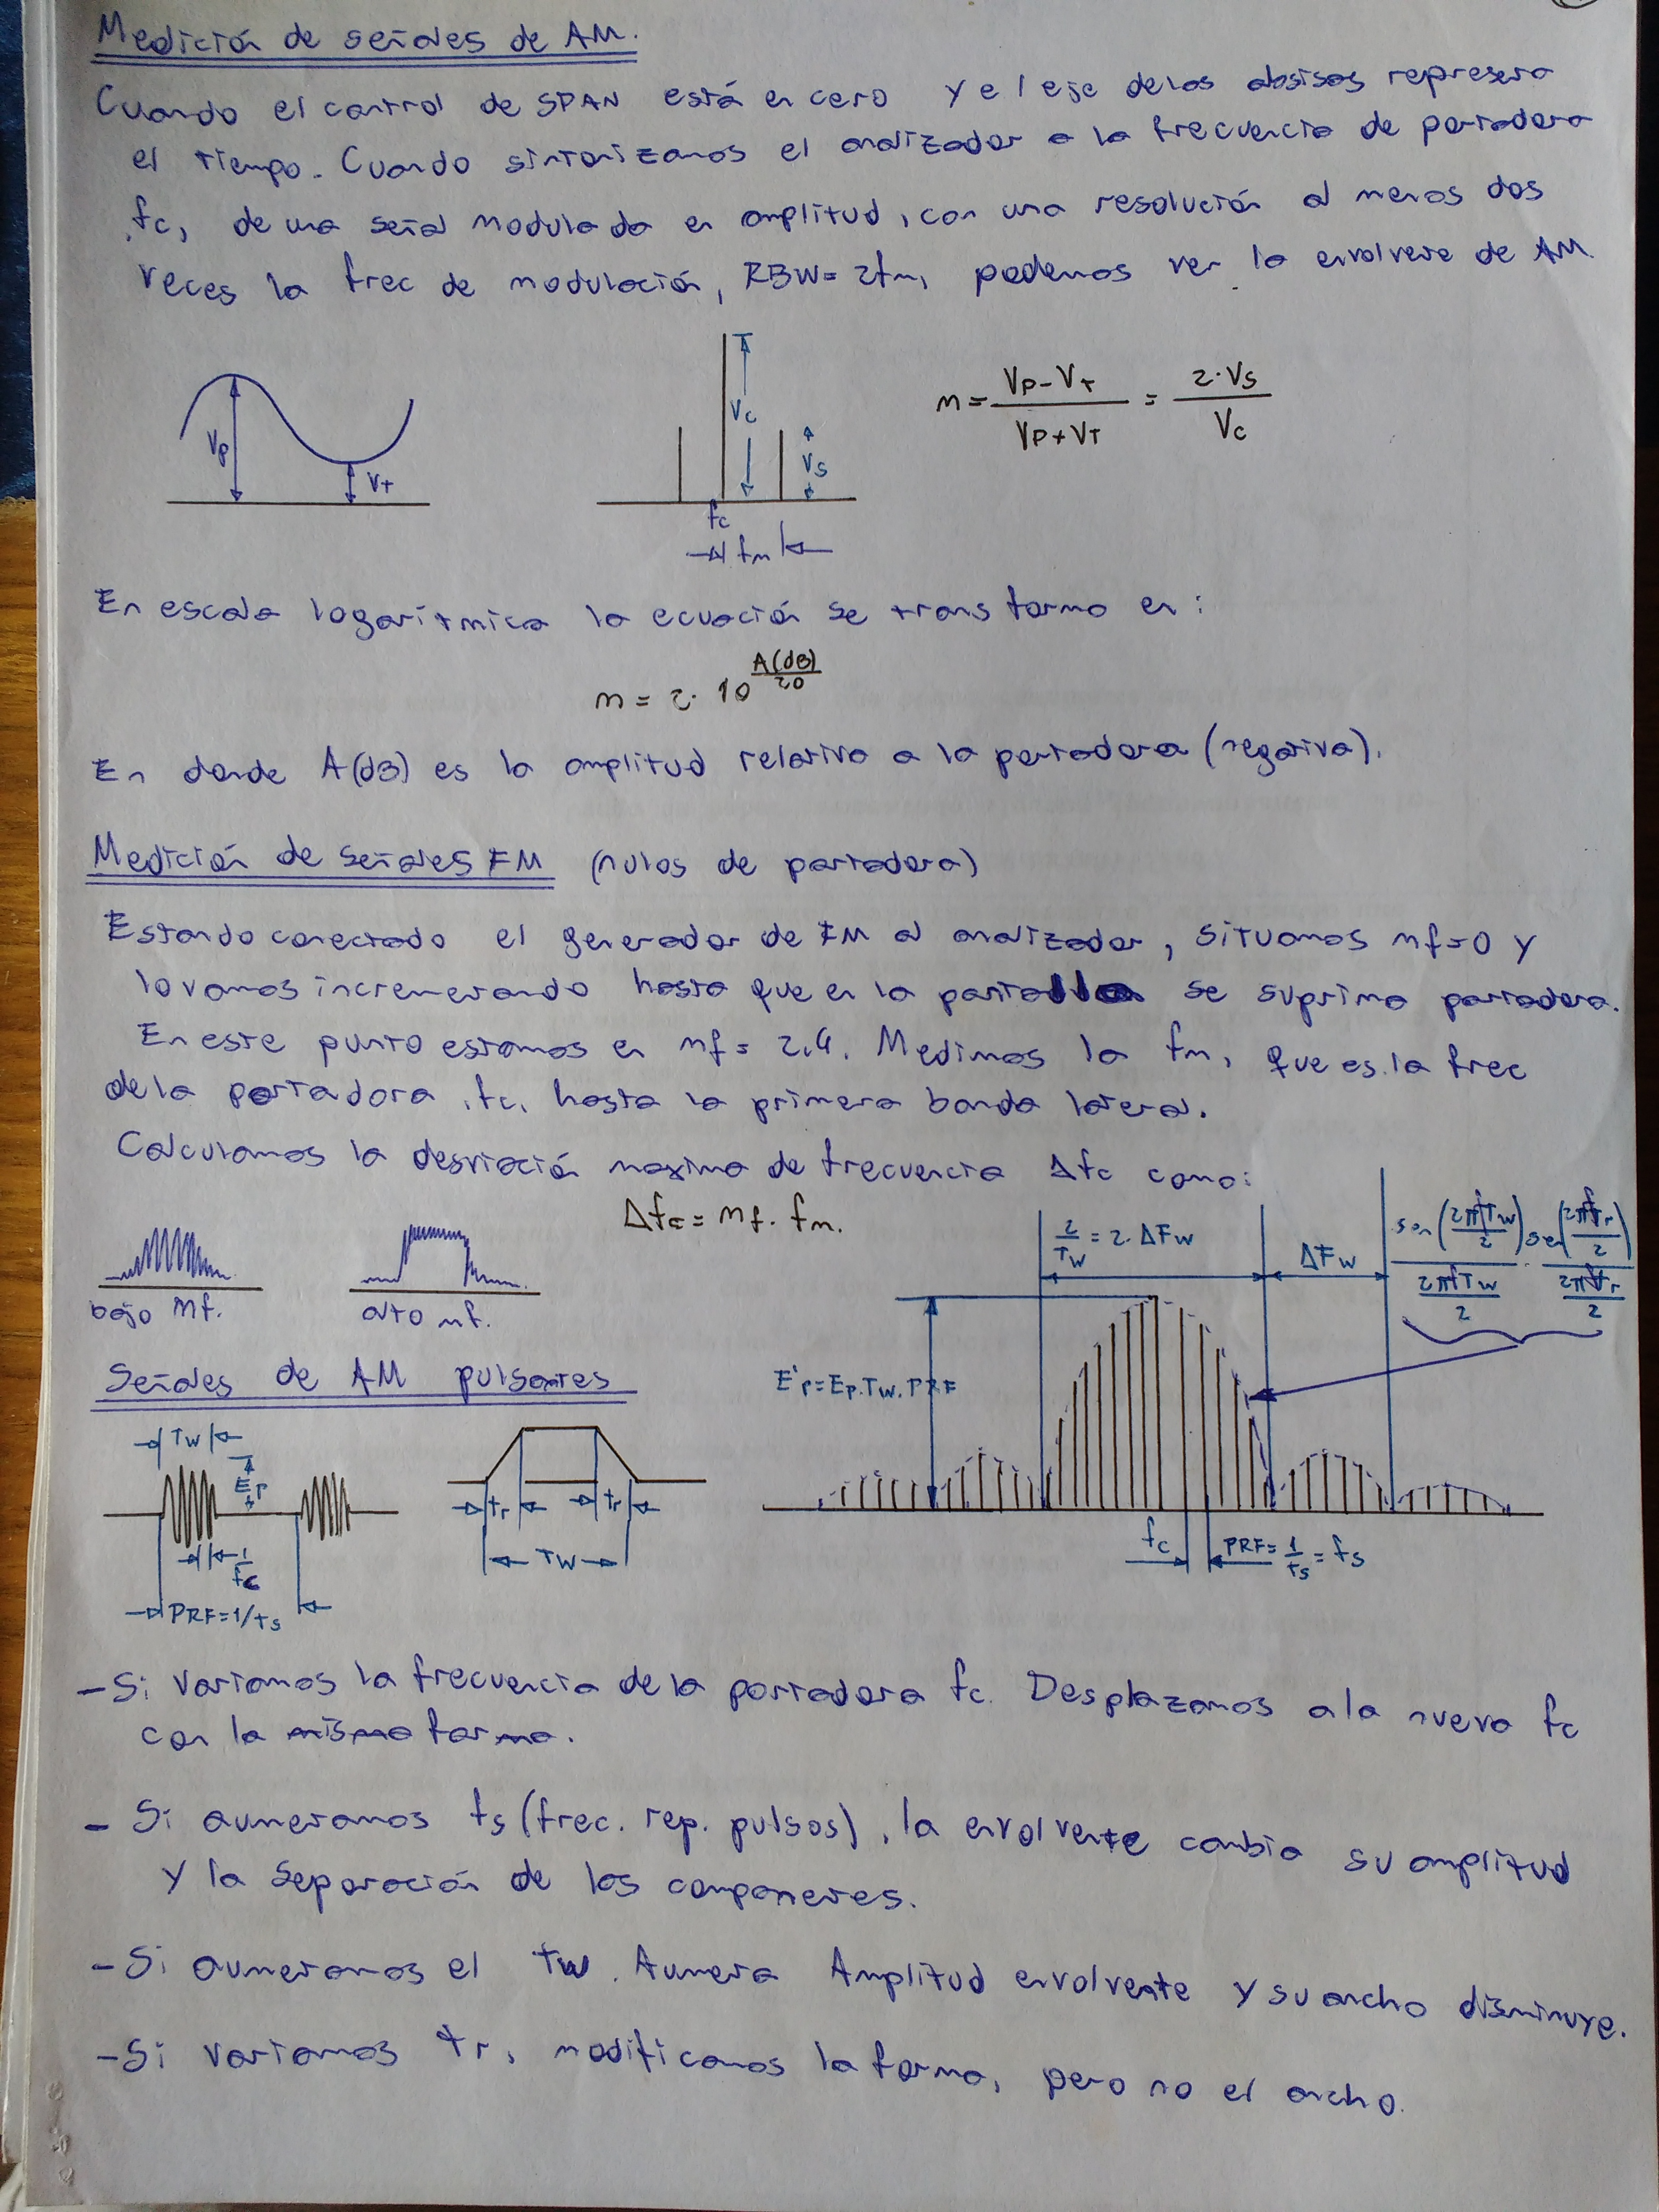 Medición de señales de AM.
Cuando el control de SPAN está en cero y el eje de las absisas representa
el tiempo. Cuando sintonizamos el analizador a la frecuencia de portadora
fc, de una señal modulada en amplitud, con una resolución al menos dos
veces la frec de modulación, RBW= 2fm, podemos ver la envolvente de AM.
Vp
VT
Vc
Vs
fc
fm
m = (Vp-VT)/(Vp+VT) = (2·Vs)/Vc
En escala logarítmica la ecuación se transforma en:
m = 2· 10^(A(dB)/20)
En donde A(dB) es la amplitud relativa a la portadora (negativa).
Medición de señales FM (nulos de portadora)
Estando conectado el generador de FM al analizador, situamos mf=0 y
lo vamos incrementando hasta que en la pantalla se suprima portadora.
En este punto estamos en mf= 2,4. Medimos la fm, que es la frec
de la portadora, fc, hasta la primera banda lateral.
Calculamos la desviación maxima de frecuencia Δfc como:
Δfc = mf · fm.
bajo mf.
alto mf.
2/Tw = 2·ΔFw
ΔFw
sen(2πfTw/2)/(2πfTw/2) · sen(2πftr/2)/(2πftr/2)
E'p=Ep.Tw.PRF
fc
PRF=1/ts=fs
Señales de AM pulsantes
Tw
Ep
1/fc
PRF=1/ts
tr
tr
Tw
-Si variamos la frecuencia de la portadora fc. Desplazamos a la nueva fc
con la misma forma.
- Si aumentamos fs (frec. rep. pulsos), la envolvente cambia su amplitud
y la separación de los componentes.
-Si aumentamos el tw. Aumenta Amplitud envolvente y su ancho disminuye.
-Si variamos tr, modificamos la forma, pero no el ancho.